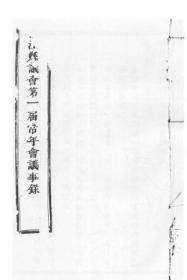 江縣議會第一屆常年會議事錄